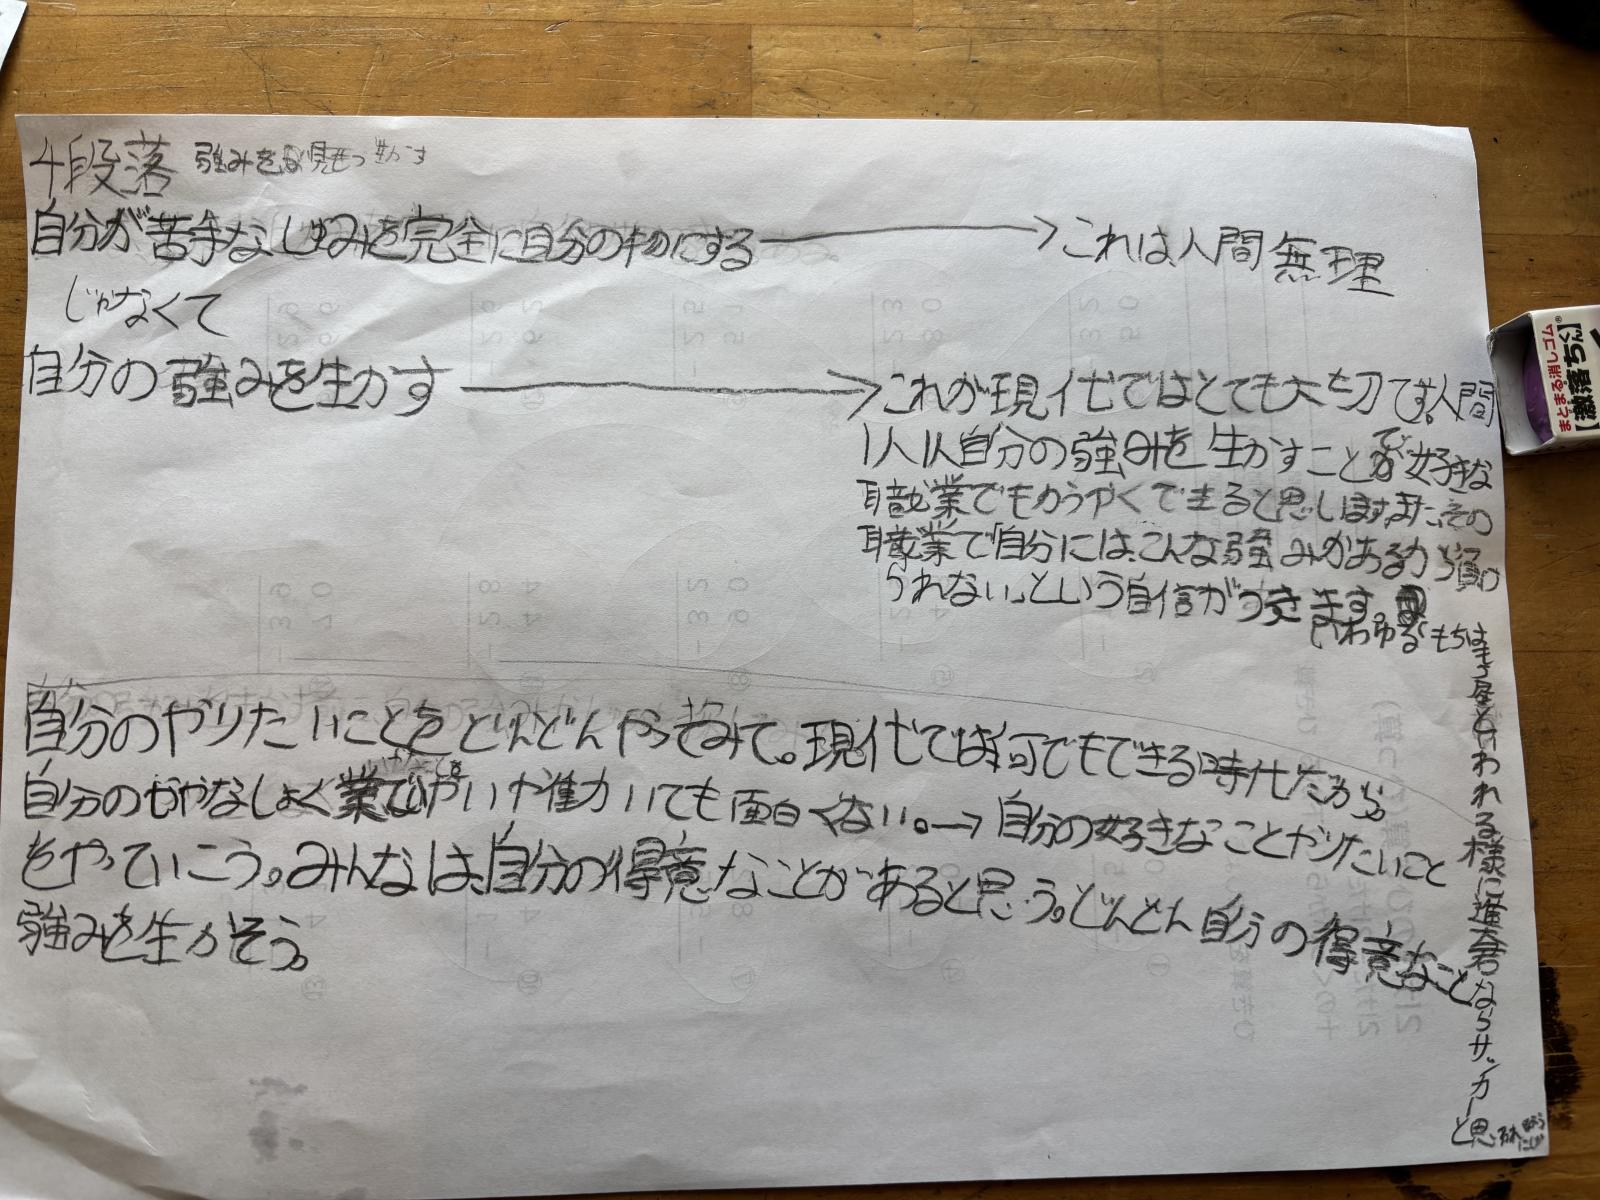 4段落 強みを
自分が苦手なしゅみを完全に自分の物にする→これは、人間無理
じゃなくて
自分の強みを生かす→これが現代ではとても大切です。人間
1人1人自分の強みを生かすことで好きな
職業でもかつやくできると思います。また、その
職業で「自分には、こんな強みがあるから負け
られない。」という自信がつきます。
いわゆる「もちは
もち屋といわれる様に進太君ならサッカーと思
自分のやりたいことをどんどんやってみて。現代では何でもできる時代だから。
自分のいやなしょく業でいやいや働いても面白くない。→自分の好きなことやりたいこと
をやっていこう。みんなは、自分の得意なことがあると思う。どんどん自分の得意なこと
強みを生かそう。
まとまる消しゴム
【激落ちくん】